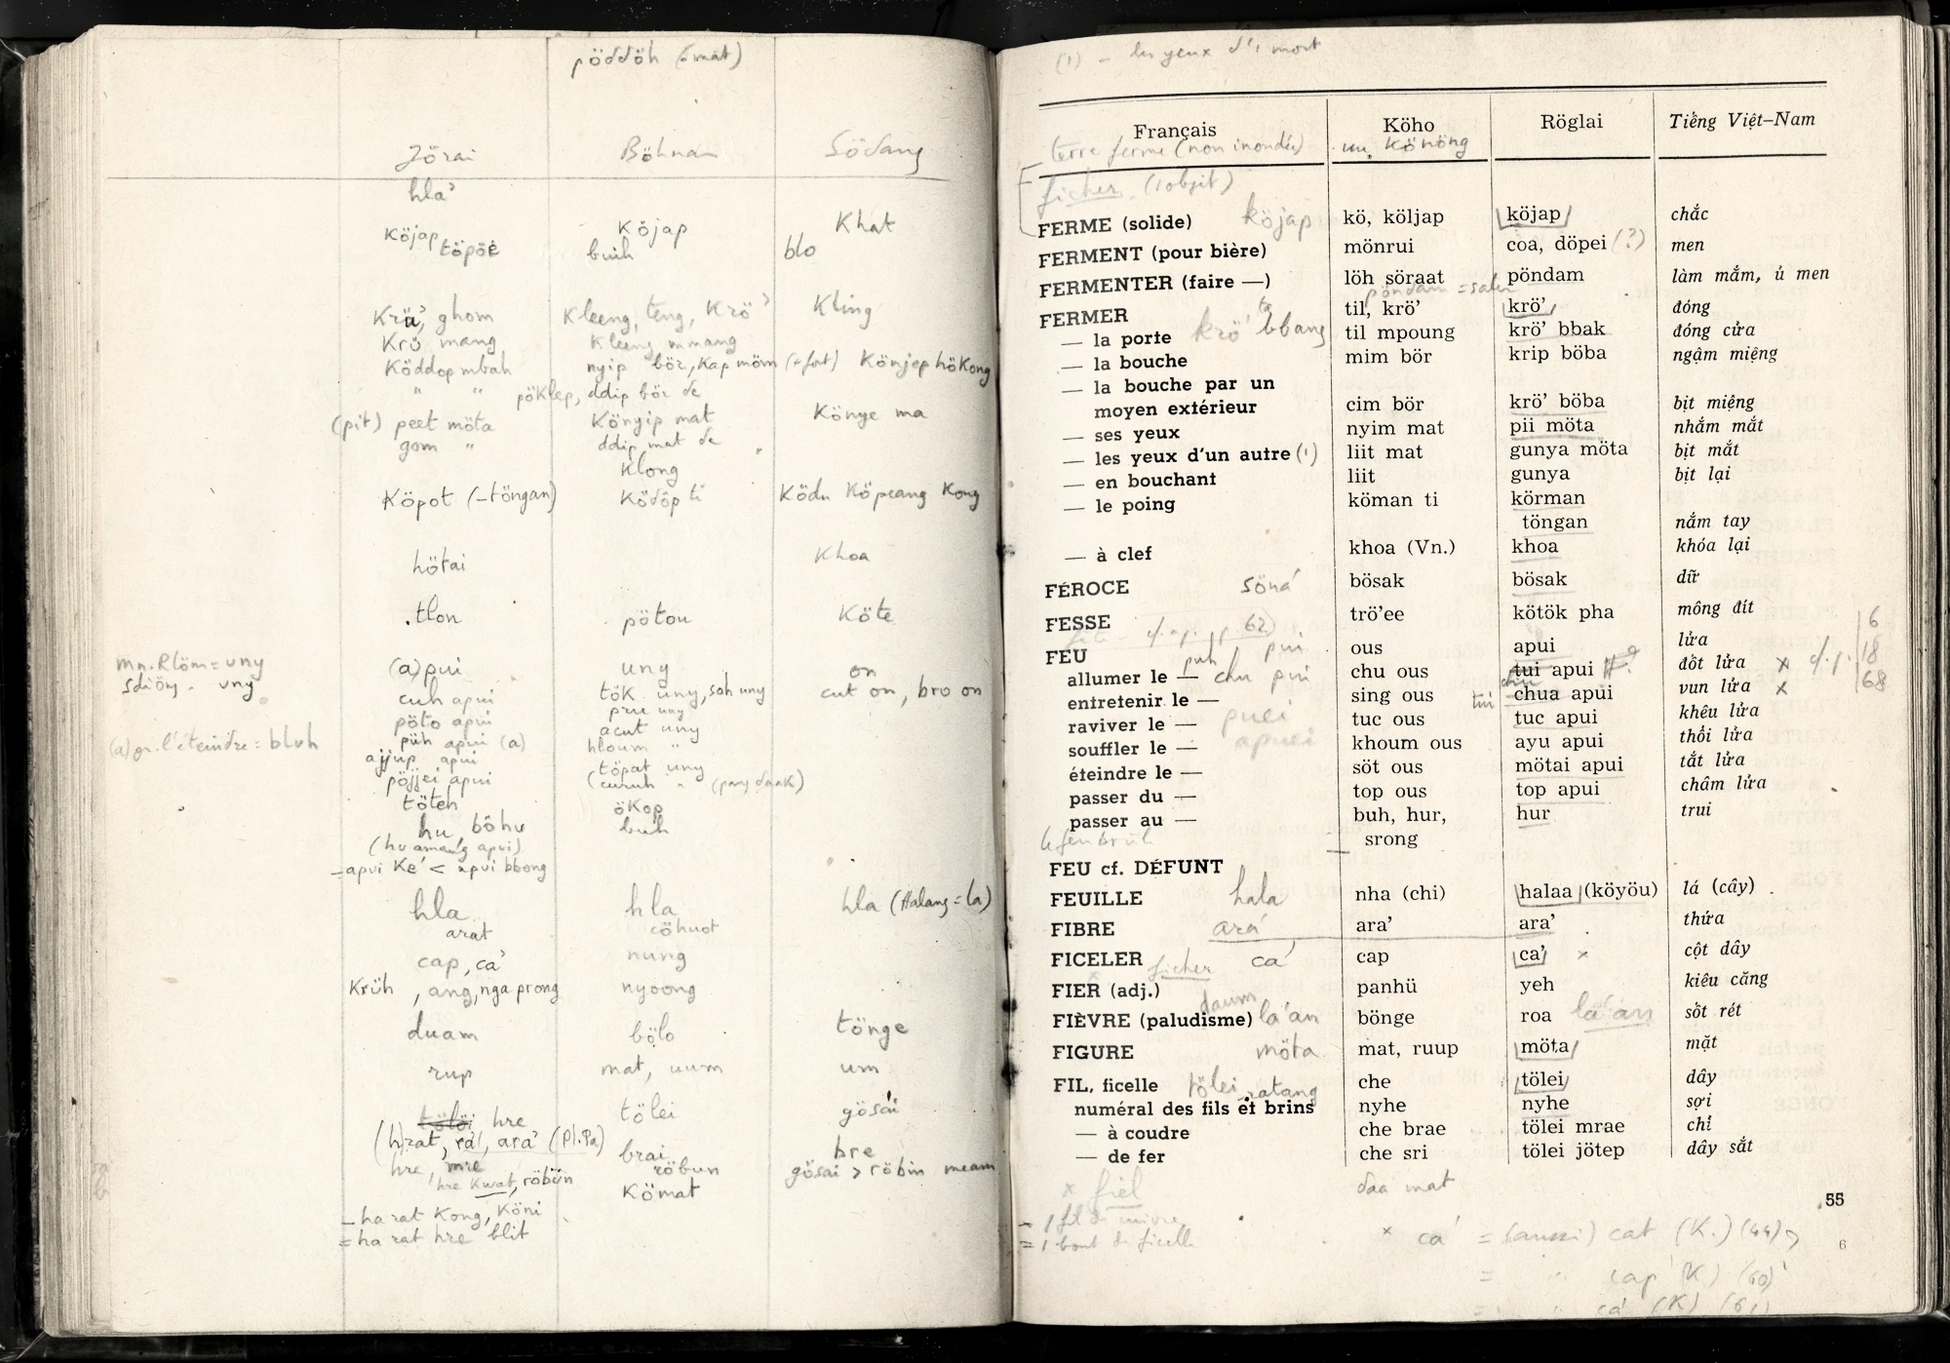 pöddöh (- mat)
Jörai Böhnan Södang
hla'
Köjap Köjap Khat
töpöi buih blo
Krŭ', ghom Kleeng, teng, Krö' Kling
Krŭ mang Kleeng mmang
Köddop mbah nyip bör, Kap möm (+ fort) Könjep hö Kong
" " pöklep, ddip bör de
(pit) peet möta Könyip mat Könye ma
gom " ddip mat de "
Klong
Köpot (- töngan) Ködöp ti Ködu Köpeang Kong
hötai Khoa
tlon pötou Köte
mn. Rlöm = uny
Sdiöng - uny
(a) pui uny on
cuh apui tök uny, soh uny cut on, bro on
pöto apui prue uny
püh apui (a) acut uny
(a) gr. l'éteindre = bluh
ajjup apui hloum "
pöjjei apui töpat uny
(curuh " (pang daak)
töteh ökop
hu, böhu buh
(hu amang apui)
- apui Ke' < apui bbong
hla hla hla (Halang = la)
arat cöhuot
cap, ca' nung
Krüh, ang, nga prong nyoong
duam bölo tönge
rup mat, uum um
tölöi hre tölei gösai
(h)rat, ra', ara' (Pl. Pa)
hre, mre brai bre
hre Kwat, röbŭn röbun gösai > röbin meam
Kömat
- ha rat Kong, Köni
= ha rat hre blit
(1) - les yeux d'1 mort
Français Köho Röglai Tiếng Việt-Nam
terre ferme (non inondée) Könöng
ficher (1 objet)
FERME (solide) köjap kö, köljap köjap chắc
FERMENT (pour bière) mönrui coa, döpei (?) men
FERMENTER (faire —) löh söraat pöndam làm mắm, ủ men
FERMER til, krö' krö' đóng
— la porte krö' bbang til mpoung krö' bbak đóng cửa
— la bouche mim bör krip böba ngậm miệng
— la bouche par un
moyen extérieur cim bör krö' böba bịt miệng
— ses yeux nyim mat pii möta nhắm mắt
— les yeux d'un autre (1) liit mat gunya möta bịt mắt
— en bouchant liit gunya bịt lại
— le poing köman ti körman
töngan nắm tay
— à clef khoa (Vn.) khoa khóa lại
FÉROCE söná bösak bösak dữ
FESSE trö'ee kötök pha mông đít
FEU pui ous apui lửa
allumer le — chu pui chu ous tui apui đốt lửa x
entretenir le — sing ous chua apui vun lửa x
raviver le — puei tuc ous tuc apui khêu lửa
souffler le — apuei khoum ous ayu apui thổi lửa
éteindre le — söt ous mötai apui tắt lửa
passer du — top ous top apui châm lửa
passer au — buh, hur, hur trui
srong
6
18
68
FEU cf. DÉFUNT
FEUILLE hala nha (chi) halaa (köyöu) lá (cây)
FIBRE ará ara' ara' thứa
FICELER ca' cap ca' x cột dây
ficher
FIER (adj.) panhü yeh kiêu căng
daum
FIÈVRE (paludisme) la'an bönge roa la'an sốt rét
FIGURE möta mat, ruup möta mặt
FIL, ficelle tölei ratang che tölei dây
numéral des fils et brins nyhe nyhe sợi
— à coudre che brae tölei mrae chỉ
— de fer che sri tölei jötep dây sắt
x fiel daa mat
55
- 1 fil de cuivre
= 1 bout de ficelle
x ca' = (aussi) cat (K.) (44)
6
= " cap (K) (60)
= " ca' (K) (61)